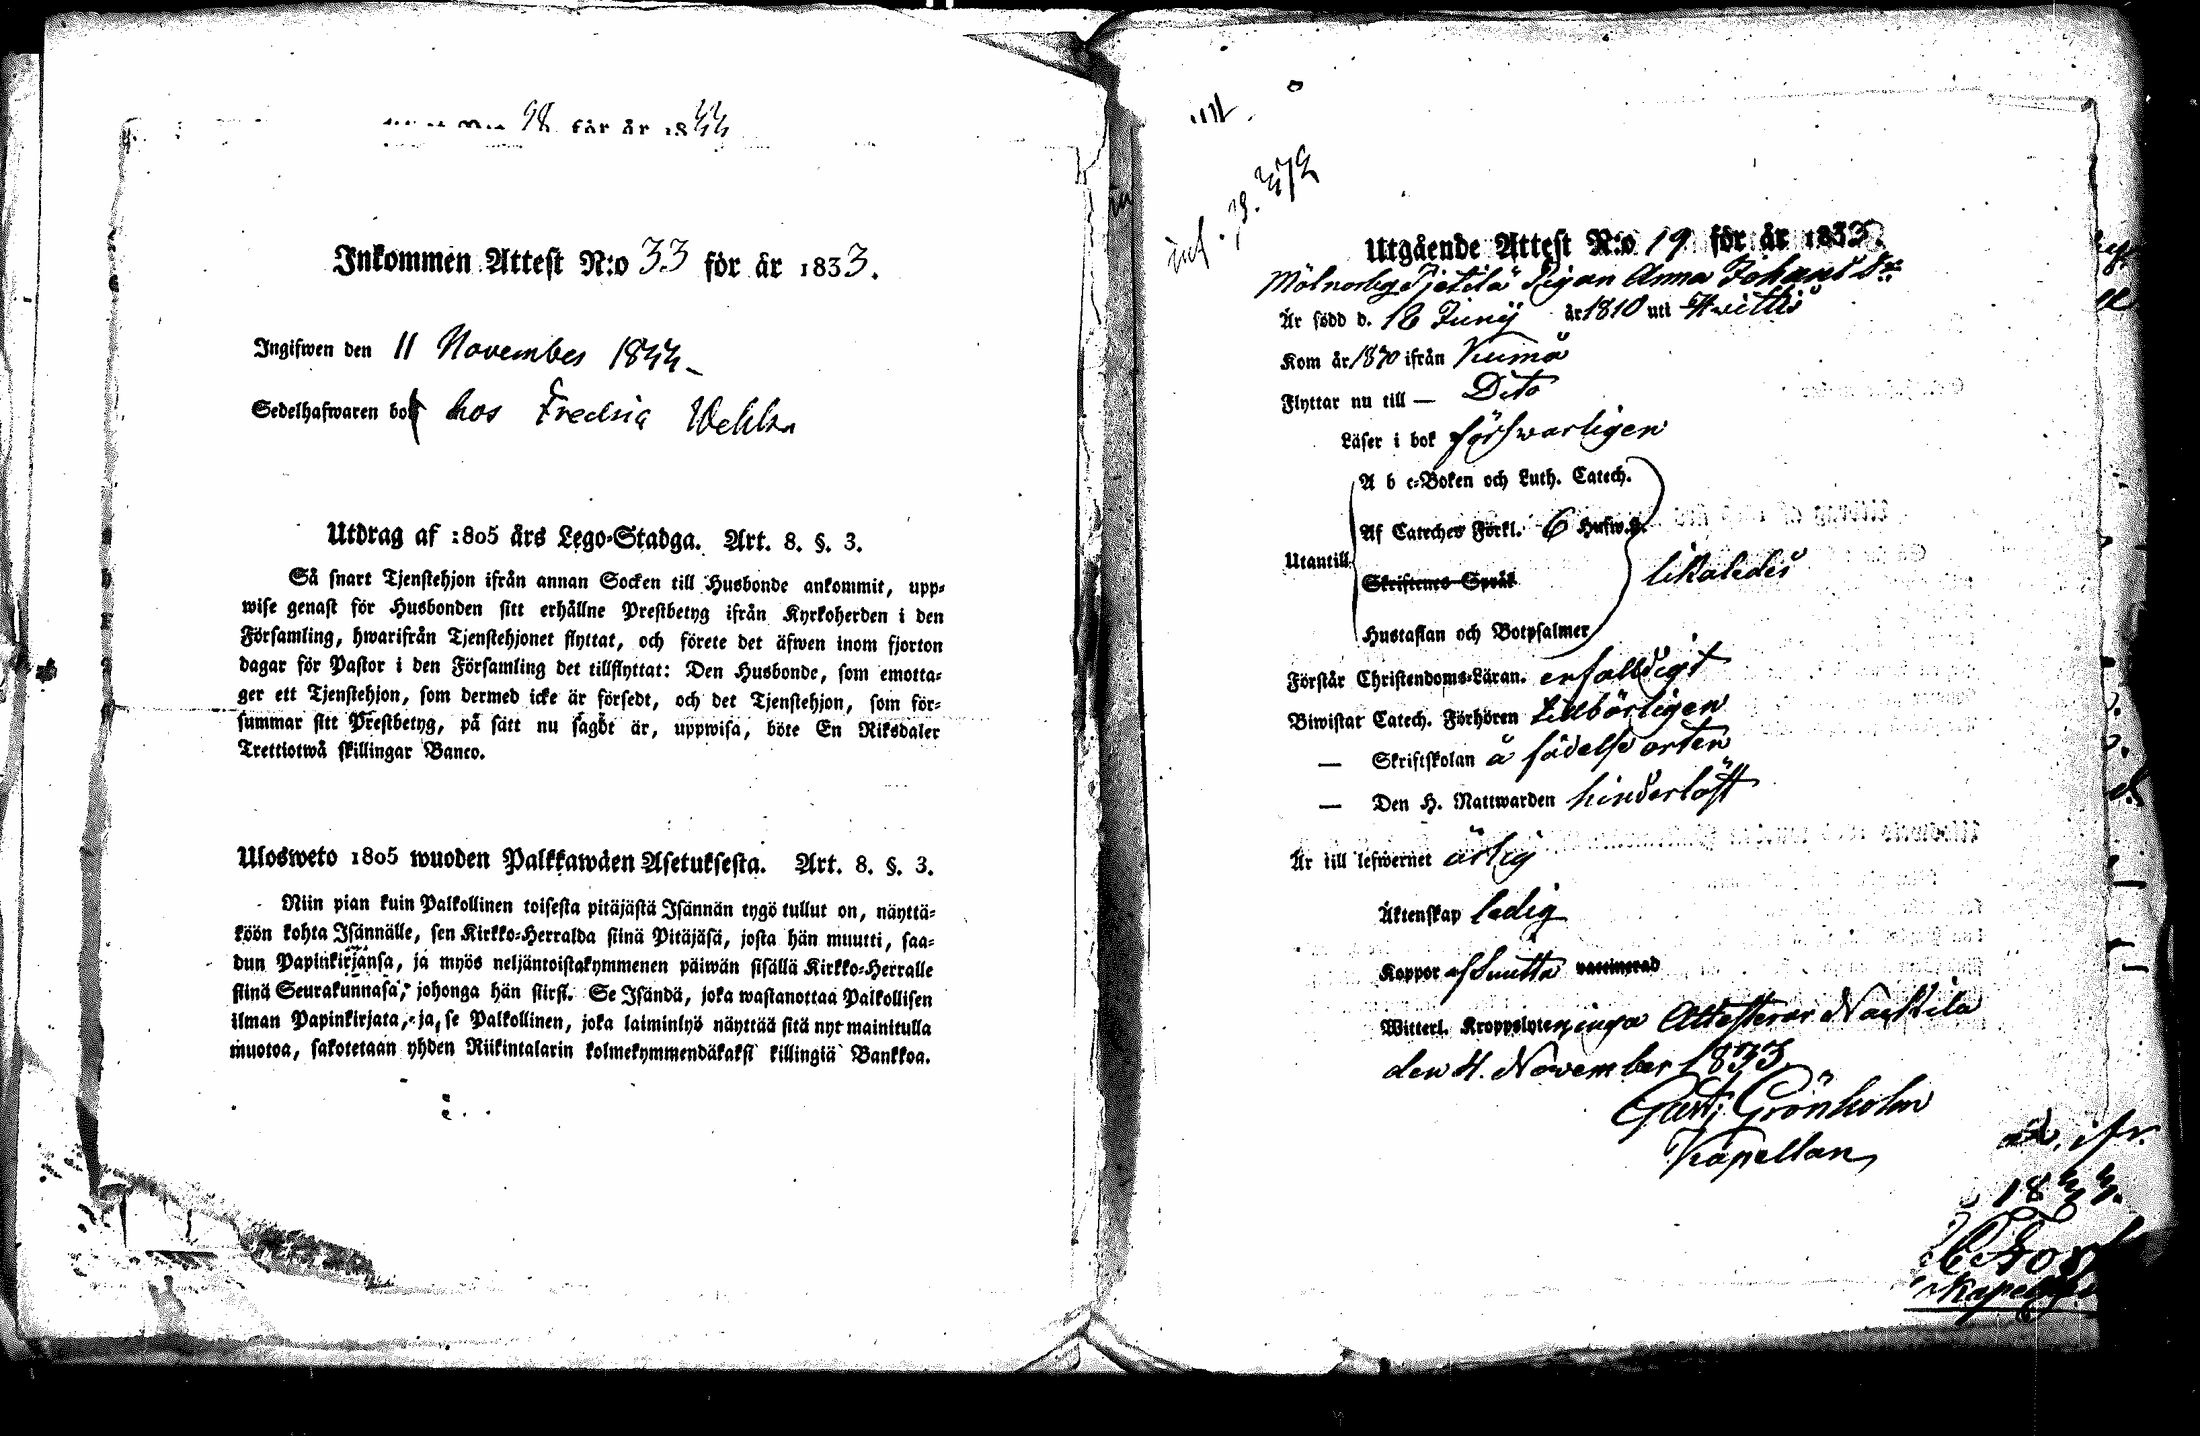 98 för år 1833
Inkommen Attest N:o 33 för år 1833.
Ingifwen den 11 November 1833
Sedelhafwaren bor hos Fredric
Utdrag af 1805 års Lego-Stadga. Art. 8. §. 3.
Så snart Tjenstehjon ifrån annan Socken till Husbonde ankommit, upp-
wise genast för Husbonden sitt erhållne Prestbetyg ifrån Kyrkoherden i den
Församling, hwarifrån Tjenstehjonet flyttat, och förete det äfwen inom fjorton
dagar för Pastor i den Församling det tillflyttat: Den Husbonde, som emotta-
ger ett Tjenstehjon, som dermed icke är försedt, och det Tjenstehjon, som för-
summar sitt Prestbetyg, på sätt nu sagdt är, uppwisa, böte En Riksdaler
Trettiotwå skillingar Banco.
Ulosweto 1805 wuoden Palkkawäen Asetuksesta. Art. 8. §. 3.
Niin pian kuin Palkollinen toisesta pitäjästä Isännän tygö tullut on, näyttä-
köön kohta Isännälle, sen Kirkko-Herralda siinä Pitäjäsä, josta hän muutti, saa-
dun Papinkirjansa, ja myös neljäntoistakymmenen päiwän sisällä Kirkko-Herralle
siinä Seurakunnasa, johonga hän siirsi. Se Isändä, joka wastanottaa Palkollisen
ilman Papinkirjata, ja se Palkollinen, joka laiminlyö näyttää sitä nyt mainitulla
muotoa, sakotetaan yhden Riikintalarin kolmekymmendäkaksi killingiä Bankkoa.
Utgående Attest N:o 19 för år 1833.
Pietilä Pigan Anna Johans Dr
Är född d. 18 Junij år 1810 uti Hvittis
Kom år 1830 ifrån Kumo
Flyttar nu till — Dito
Läser i bok försvarligen
A b c-Boken och Luth. Catech.
Af Cateches Förkl. 6 Hufw.S.
Utantill
Skriftenes Språk
likaledes
Hustaflan och Botpsalmer
Förstår Christendoms-Läran. enfalldigt
Biwistar Catech. Förhören Tillbörligen
— Skriftskolan å födelse orten
— Den H. Nattwarden hinderlöst
Är till lefwernet ärlig
Äktenskap ledig
Koppor af Smitta vaccinerad
Witterl. Kroppslyten inga Attesterar Nackila
den 4. November 1833.
Gust: Grönholm
Kapellan
ifr.
1833.